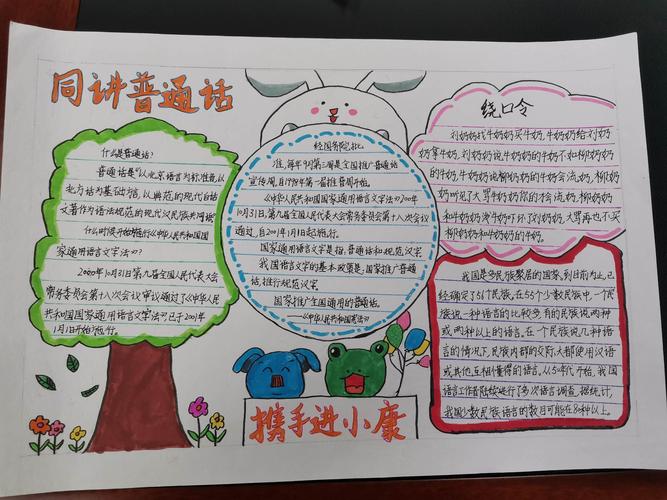 同讲普通话
什么是普通话?
普通话是“以北京语言为标准音,以
北方话为基础方言,以典范的现代白话
文著作为语法规范的现代汉民族共同语”
什么时候开始施行《中华人民共和国国
家通用语言文字法》?
2000年10月31日第九届全国人民代表大会
常务委员会第十八次会议审议通过了《中华人民
共和国国家通用语言文字法》已于2001年
1月1日开始施行。
经国务院批
准,每年9月第三周是全国推广普通话
宣传周,自1998年第一届推普周开始。
《中华人民共和国国家通用语言文字法》2000年
10月31日,第九届全国人民代表大会常务委员会第十八次会议
通过,自2001年1月1日起施行。
国家通用语言文字是指:普通话和规范汉字
我国语言文字的基本政策是:国家推广普通
话,推行规范汉字
国家推广全国通用的普通话。
——《中华人民共和国宪法》
绕口令
刘奶奶找牛奶奶买牛奶,牛奶奶给刘奶
奶拿牛奶,刘奶奶说牛奶奶的牛奶不如柳奶奶
的牛奶,牛奶奶说柳奶奶的牛奶会流奶,柳奶
奶听见了大骂牛奶奶你的才会流奶,柳奶奶
和牛奶奶泼牛奶吓坏了刘奶奶,大骂再也不买
柳奶奶和牛奶奶的牛奶。
我国是多民族聚居的国家,到目前为止,已
经确定了56个民族,在55个少数民族中,一个民
族说一种语言的比较多,有的民族说两种
或两种以上的语言。在一个民族说几种语
言的情况下,民族内部的交际,大都使用汉语
或其他互相懂得的语言,从50年代开始,我国
语言工作者陆续进行了多次语言调查,据统计,
我国少数民族语言的数目可能在80种以上。
携手进小康